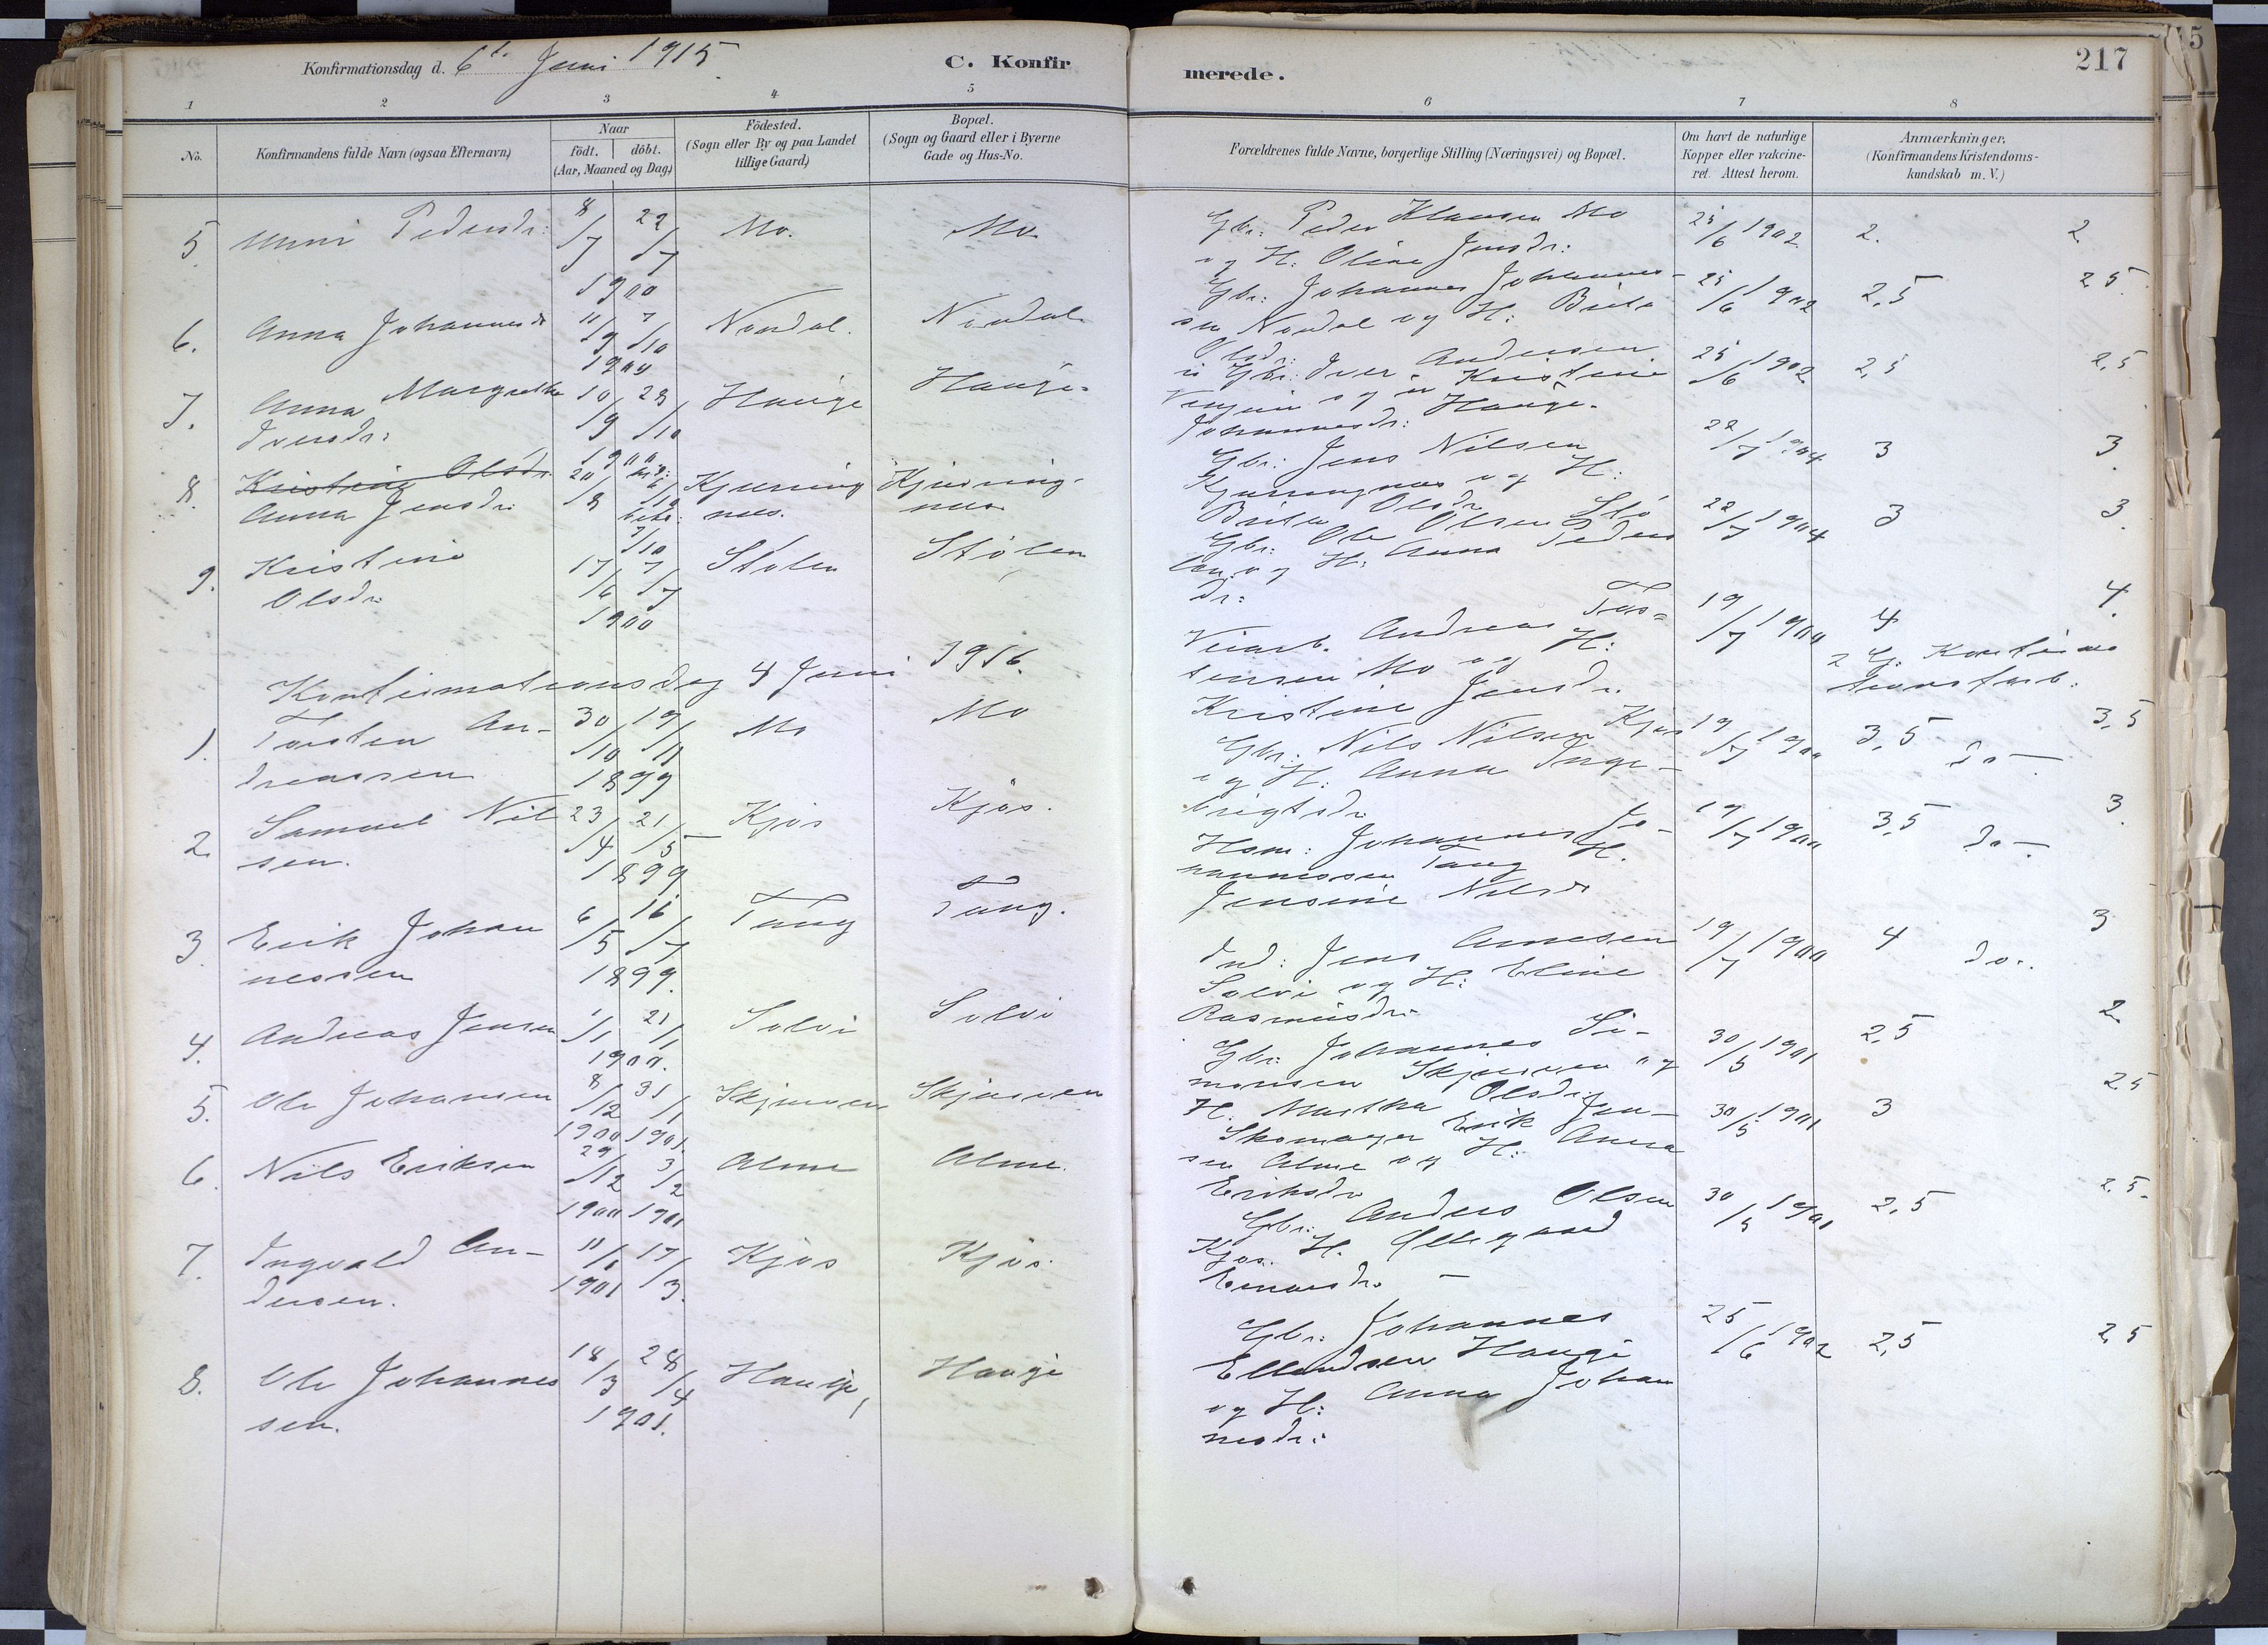 Konfirmationsdag d. 6te Juni 1915.
C. Konfirmerede.
217
1 2 3 4 5 6 7 8
No.
Konfirmandens fulde Navn (ogsaa Efternavn)
Naar
födt. | döbt.
(Aar, Maaned og Dag)
Födested.
(Sogn eller By og paa Landet
tillige Gaard)
Bopæl.
(Sogn og Gaard eller i Byerne
Gade og Hus-No.
Forældrenes fulde Navne, borgerlige Stilling (Næringsvei) og Bopæl.
Om havt de naturlige
Kopper eller vakcine-
ret. Attest herom.
Anmærkninger.
(Konfirmandens Kristendoms-
kundskab m. V.)
5. Pedersdr: 8/7 22/7 Mo. Mo.
1900
Gbr: Peder Klausen Mo 25/6 1902 2. 2
og H: Oline Jensdr:
6. Anna Johannesdr 11/9 7/10 Nordal. Nordal
1900
Gbr: Johannes Johannes- 25/6 1902 2,5 2,5
sen Nordal og H: Brita
Olsdr:
7. Anna Margrethe 10/9 28/10 Hauge Hauge.
Iversdr: 1900
Gbr: Iver Andersen 25/6 1902 2,5 2,5
og Kristine
Johannesdr: Hauge.
8. Kristine Olsdr. 20/8
Anna Jensdr: Kjerring nes. Kjerring- nes
Gbr: Jens Nilsen 22/7 1904 3 3.
Kjerringnes og H:
Brita Olsdr
9. Kristine 17/6 7/7 Stölen Stölen
Olsdr: 1900
Gbr: Ole Olsen Stö 22/7 1904 3 3.
len og H: Anna Peders
dr:
Konfirmationsdag 4 Juni 1916.
1. Torsten An- 30/10 19/11 Mo Mo
dreassen 1899
Veiarb. Andreas Tos- 19/7 1900 4 4.
tensen Mo og H:
Kristine Jensdr.
2. Samuel Nil 23/4 21/5 Kjös Kjös.
sen. 1899
Gbr: Nils Nilsen Kjös 19/7 1900 3,5 do - 3,5
og H: Anna Inge-
brigtsdr
3. Erik Johan 6/5 16/7 Tang Tang.
nessen 1899.
Hsm: Johannes Jo- 19/7 1900 3,5 do -. 3.
hannessen Tang H.
Jensine Nilsdr
4. Andreas Jensen 1/1 21/1 Solvi Solvi
1900.
Ind: Jens Arnesen 19/7 1900 4 do. 3
Solvi og H: Eline
Rasmusdr.
5. Ole Johansen 8/12 31/1 Skjerven Skjerven
1900 1901.
Gbr: Johannes Si- 30/5 1901 2,5 2.
monsen Skjerven og
H: Martha Olsdr
6. Nils Eriksen 29/12 3/2 Alme Alme.
1900 1901
Skomager Erik Jen- 30/5 1901 3 2,5
sen Alme og H: Anna
Eriksdr
7. Ingvald An- 11/1 17/3 Kjös Kjös.
dersen. 1901
Gbr: Anders Olsen 30/5 1901 2,5 2.5.
Kjos. H. Ellegaard
Einarsdr. -
8. Ole Johannes 18/3 28/4 Hauge, Hauge
sen. 1901.
Gbr: Johannes 25/6 1902 2,5 2,5
Ellendsen Hauge
og H: Anna Johan
nesdr: